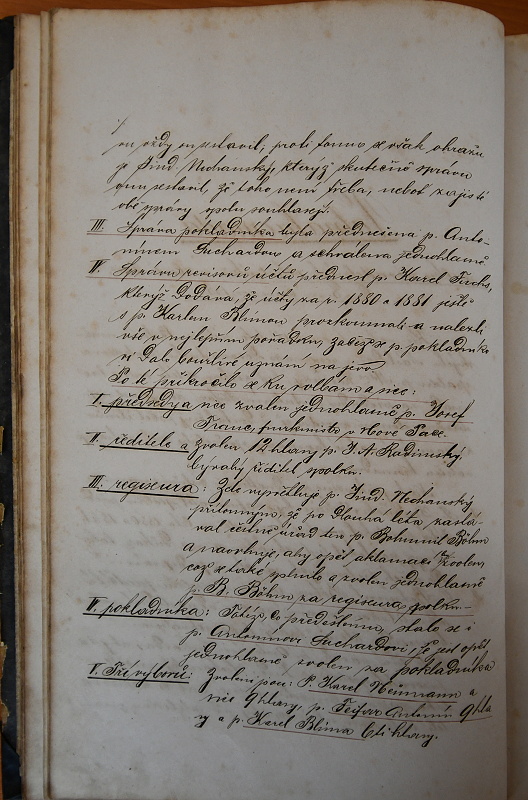 on vždy sestavil, proti tomu se však ohražu
je Jind. Nechanský, kterýž skutečně zprávu
onu sestavil, že toho není třeba, neboť zajisté
obě zprávy spolu souhlasejí.
III. Zpráva pokladníka byla přednešena p. Anto-
nínem Suchardou a schválena jednohlasně
IV. Zprávu revisorů účtů přednesl p. Karel Fuchs,
kterýž dodává, že účty za r. 1880 a 1881 ještě
s p. Karlem Blímou prozkoumali a nalezli
vše v nejlepším pořádku, začež se p. pokladníko
vi dalo bouřlivé uznání na jevo
Po té přikročilo se ku volbám a sice:
I. předsedy a sice zvolen jednohlasně p. Josef
Franc, purkmistr v Nové Pace.
II. ředitele a zvolen 12 hlasy p. J. N. Radimský
bývalý ředitel spolku.
III. regiseura: Zde vysvětluje p. Jind. Nechanský
přítomným, že po dlouhá léta zastá-
val čestně úřad ten p. Bohumil Böhm
a navrhuje, aby opět aklamací zvolen,
což se také splnilo a zvolen jednohlasně
p. B. Böhm za regiseura spolku.
IV. pokladníka: Totéž, co předešlému, stalo se i
p. Antonínovi Suchardovi, že jest opět
jednohlasně zvolen za pokladníka
V. Tří výborů: Zvoleni jsou: P. Karel Neumann a
sice 9 hlasy, p. Feifar Antonín 9 hla
sy a p. Karel Blíma 6ti hlasy.